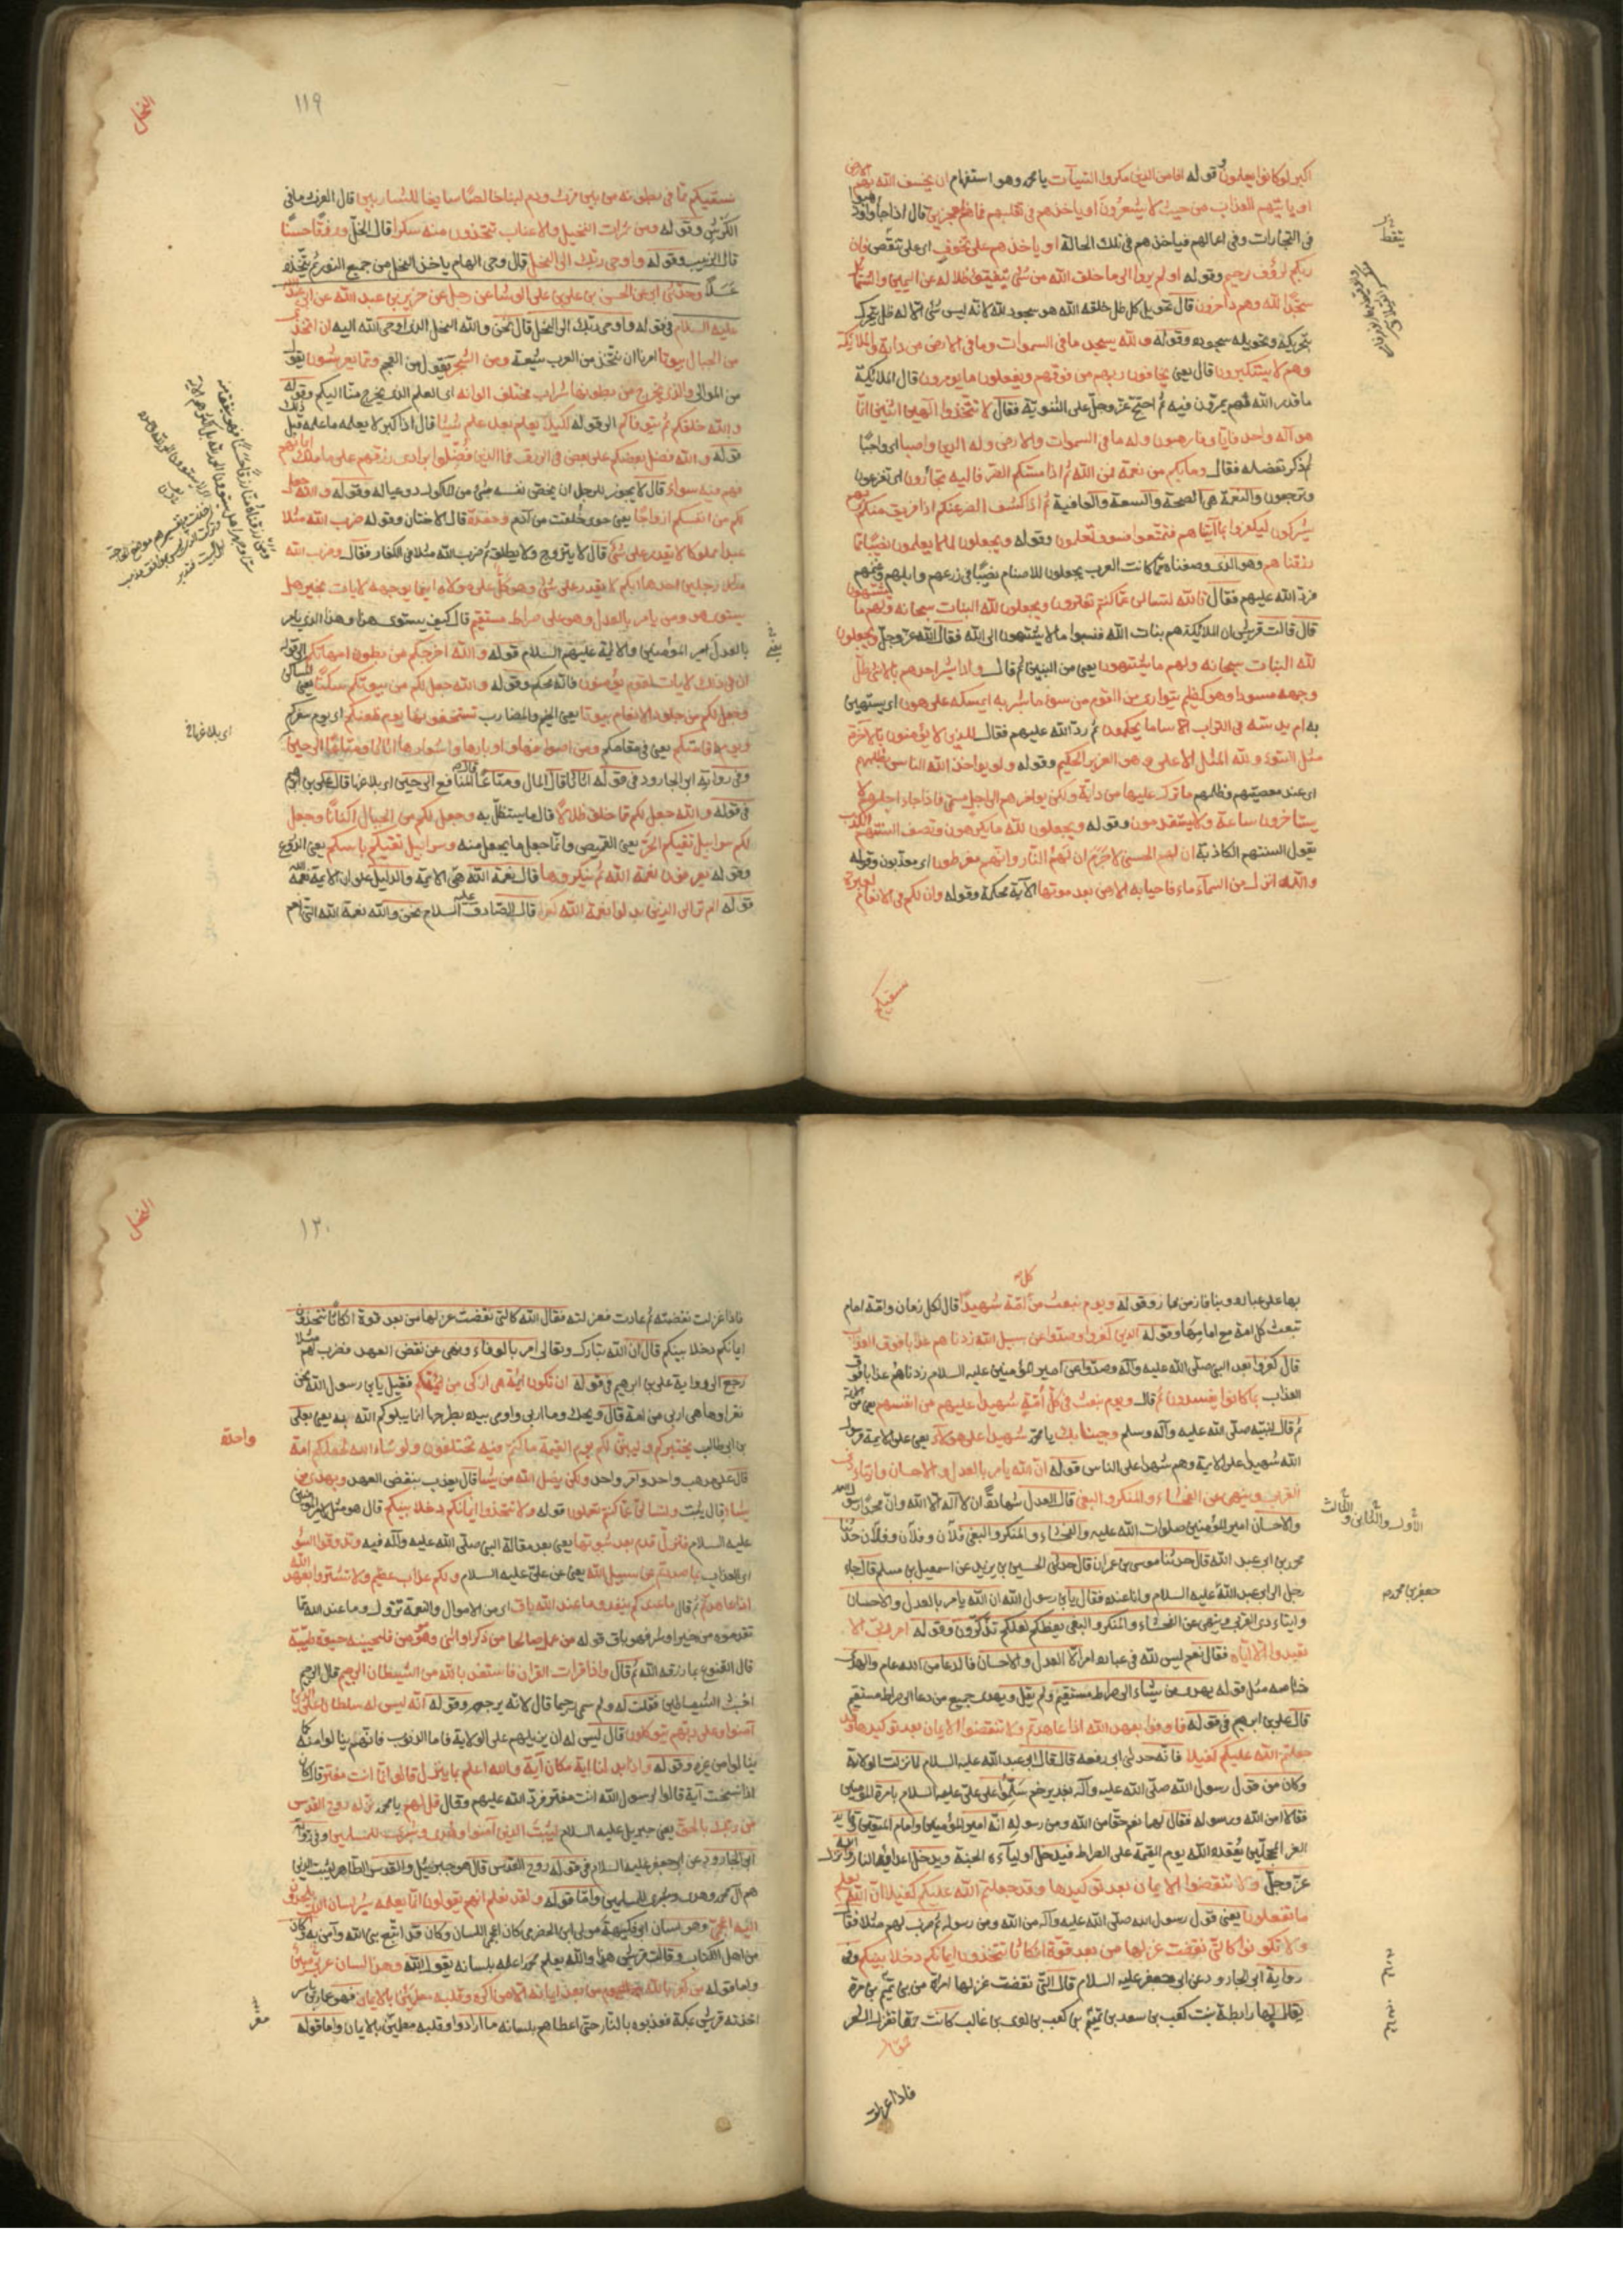 اكبر لو كانوا يعلمون وقوله افامن الذين مكروا السيآت يا محمد وهو استفهام ان يخسف الله بهم الارض
او ياتيهم العذاب من حيث لا يشعرون او ياخذهم في تقلبهم فما هم بمعجزين قال اذا جاؤا وذهبوا
في التجارات وفي اعمالهم فياخذهم في تلك الحالة او ياخذهم على تخوف اى على تنقص فان
ربكم لرؤف رحيم وقوله او لم يروا الى ما خلق الله من شئ يتفيؤ ظلاله عن اليمين والشمائل
سجدا لله وهم داخرون قال تحويل كل ظل خلقه الله هو سجود لله لانه ليس شئ الا له ظل يتحرك
بتحريكه وتحويله سجوده وقوله ولله يسجد ما في السموات وما في الارض من دابة والملائكة
وهم لا يستكبرون قال يعنى يخافون ربهم من فوقهم ويفعلون ما يومرون قال الملائكة
ما قدر الله لهم يمرون فيه ثم احتج عز وجل على الثنوية فقال لا تتخذوا الهين اثنين انما
هو اله واحد فاياى فارهبون وله ما في السموات والارض وله الدين واصبا اى واجبا
ثم ذكر تفضله فقال وما بكم من نعمة فمن الله ثم اذا مسكم الضر فاليه تجأرون اى تفزعون
وترجعون والنعمة هى الصحة والسعة والعافية ثم اذا كشف الضر عنكم اذا فريق منكم بربهم
يشركون ليكفروا بما آتيناهم فتمتعوا فسوف تعلمون وقوله ويجعلون لما لا يعلمون نصيبا مما
رزقناهم وهو الذى وصفناه مما كانت العرب يجعلون للاصنام نصيبا في زرعهم وابلهم وغنمهم
فرد الله عليهم فقال تالله لتسالن عما كنتم تفترون ويجعلون لله البنات سبحانه ولهم ما يشتهون
قال قالت قريش ان الملائكة هم بنات الله فنسبوا ما لا يشتهون الى الله فقال الله عز وجل ويجعلون
لله البنات سبحانه ولهم ما يشتهون يعنى من البنين ثم قال واذا بشر احدهم بالانثى ظل
وجهه مسودا وهو كظيم يتوارى من القوم من سوء ما بشر به ايمسكه على هون اى يستهين
به ام يدسه في التراب الا ساء ما يحكمون ثم رد الله عليهم فقال للذين لا يؤمنون بالآخرة
مثل السوء ولله المثل الاعلى وهو العزيز الحكيم وقوله ولو يواخذ الله الناس بظلمهم
اى عند معصيتهم وظلمهم ما ترك عليها من دابة ولكن يوخرهم الى اجل مسمى فاذا جاء اجلهم لا
يستاخرون ساعة ولا يستقدمون وقوله ويجعلون لله ما يكرهون وتصف السنتهم الكذب
يقول السنتهم الكاذبة ان لهم الحسنى لا جرم ان لهم النار وانهم مفرطون اى معذبون وقوله
والله انزل من السمآء ماء فاحيا به الارض بعد موتها الآية محكمة وقوله وان لكم في الانعام لعبرة
نسقيكم
النحل
١١٩
نسقيكم مما في بطونه من بين فرث ودم لبنا خالصا سايغا للشاربين قال الفرث ما في
الكرش وقوله ومن ثمرات النخيل والاعناب تتخذون منه سكرا قال الخل ورزقا حسنا
قال الزبيب وقوله واوحى ربك الى النحل قال وحى الهام ياخذ النحل من جميع النور ثم يتخذه
عسلا وحدثنى ابى عن الحسن بن على بن على الوشاء عن رجل عن حريز بن عبد الله عن ابى عبد الله
عليه السلام في قوله واوحى ربك الى النحل قال نحن والله النحل الذى اوحى الله اليه ان اتخذى
من الجبال بيوتا امرنا ان نتخذ من العرب شيعة ومن الشجر يقول من العجم ومما يعرشون يقول
من الموالى والذى يخرج من بطونها شراب مختلف الوانه اى العلم الذى يخرج منا اليكم وقوله
والله خلقكم ثم يتوفاكم الى قوله لكيلا يعلم بعد علم شيئا قال اذا كبر لا يعلم ما علمه قبل ذلك
قوله والله فضل بعضكم على بعض في الرزق فما الذين فضلوا برادى رزقهم على ما ملكت ايمانهم
فهم فيه سواء قال لا يجوز للرجل ان يخص نفسه بشئ من الماكول دون عياله وقوله والله جعل
لكم من انفسكم ازواجا يعنى حوى خلقت من آدم وحفدة قال الاختان وقوله ضرب الله مثلا
عبدا مملوكا لا يقدر على شئ قال لا يتزوج ولا يطلق ثم ضرب الله مثلا في الكفار فقال وضرب الله
مثلا رجلين احدهما ابكم لا يقدر على شئ وهو كل على مولاه اينما يوجهه لا يات بخير هل
يستوى هو ومن يامر بالعدل وهو على صراط مستقيم قال كيف يستوى هذا وهذا الذى يامر
بالعدل امير المؤمنين والائمة عليهم السلام قوله والله اخرجكم من بطون امهاتكم الى قوله
ان في ذلك لآيات لقوم يؤمنون فانه محكم وقوله والله جعل لكم من بيوتكم سكنا يعنى المساكن
وجعل لكم من جلود الانعام بيوتا يعنى الخيم والمضارب تستخفونها يوم ظعنكم اى يوم سفركم
ويوم اقامتكم يعنى في مقامكم ومن اصوافها واوبارها واشعارها اثاثا ومتاعا الى حين
وفي رواية ابى الجارود في قوله اثاثا قال المال ومتاعا قال المنافع الى حين اى بلاغها قال على بن ابرهيم
في قوله والله جعل لكم مما خلق ظلالا قال ما يستظل به وجعل لكم من الجبال اكنانا وجعل
لكم سرابيل تقيكم الحر يعنى القميص وانما جعل ما يجعل منه وسرابيل تقيكم باسكم يعنى الدروع
وقوله يعرفون نعمة الله ثم ينكرونها قال نعمة الله هى الائمة والدليل على ان الائمة نعمة الله
قوله الم تر الى الذين بدلوا نعمة الله كفرا قال الصادق عليه السلام نحن والله نعمة الله التى انعم
اى بلاغها
بها على عباده وبنا فاز من فاز وقوله ويوم نبعث من كل امة شهيدا قال لكل زمان وامة امام
تبعث كل امة مع امامها وقوله الذين كفروا وصدوا عن سبيل الله زدناهم عذابا فوق العذاب
قال كفروا بعد النبى صلى الله عليه وآله وصدوا عن امير المؤمنين عليه السلام زدناهم عذابا فوق
العذاب بما كانوا يفسدون ثم قال ويوم نبعث في كل امة شهيدا عليهم من انفسهم يعنى من الائمة
ثم قال لنبيه صلى الله عليه وآله وسلم وجئنا بك يا محمد شهيدا على هؤلآء يعنى على الائمة فرسول
الله شهيد على الائمة وهم شهداء على الناس قوله ان الله يامر بالعدل والاحسان وايتاء ذى
القربى وينهى عن الفحشاء والمنكر والبغى قال العدل شهادة ان لا اله الا الله وان محمدا رسول الله
والاحسان امير المؤمنين صلوات الله عليه والفحشاء والمنكر والبغى فلان وفلان وفلان حدثنا
محمد بن ابى عبد الله قال حدثنا موسى بن عمران قال حدثنى الحسين بن يزيد عن اسمعيل بن مسلم قال جاء
رجل الى ابى عبد الله عليه السلام وانا عنده فقال يا بن رسول الله ان الله يامر بالعدل والاحسان
وايتاء ذى القربى وينهى عن الفحشاء والمنكر والبغى يعظكم لعلكم تذكرون وقوله امر الا
تعبدوا الا اياه فقال نعم ليس لله في عباده امر الا العدل والاحسان فالدعا من الله عام والهدى
خاص مثل قوله يهدى من يشاء الى صراط مستقيم ولم يقل ويهدى جميع من دعا الى صراط مستقيم
قال على بن ابرهيم في قوله واوفوا بعهد الله اذا عاهدتم ولا تنقضوا الايمان بعد توكيدها وقد
جعلتم الله عليكم كفيلا فانه حدثنى ابى رفعه قال قال ابو عبد الله عليه السلام لما نزلت الولاية
وكان من قول رسول الله صلى الله عليه وآله بغدير خم سلموا على على عليه السلام بامرة المؤمنين
فقالا امن الله ورسوله فقال لهما نعم حقا من الله ومن رسوله انه امير المؤمنين وامام المتقين وقايد
الغر المحجلين يقعده الله يوم القيمة على الصراط فيدخل اوليآءه الجنة ويدخل اعداءه النار وانزل الله
عز وجل ولا تنقضوا الايمان بعد توكيدها وقد جعلتم الله عليكم كفيلا ان الله يعلم
ما تفعلون يعنى قول رسول الله صلى الله عليه وآله من الله ومن رسوله ثم ضرب لهم مثلا فقال
ولا تكونوا كالتى نقضت غزلها من بعد قوة انكاثا تتخذون ايمانكم دخلا بينكم وفى
رواية ابى الجارود عن ابى جعفر عليه السلام قال التى نقضت غزلها امراة من بنى تيم بن مرة
يقال لها رابطة بنت كعب بن سعد بن تيم بن كعب بن لوى بن غالب كانت حمقا تغزل الشعر
الأول والثانى والثالث
جعفر بن محمد
فاذا غزلت
النحل
١٢٠
فاذا غزلت نقضته ثم عادت فغزلته فقال الله كالتى نقضت غزلها من بعد قوة انكاثا تتخذون
ايمانكم دخلا بينكم قال ان الله تبارك وتعالى امر بالوفاء ونهى عن نقض العهد فضرب لهم مثلا
رجع الى رواية على بن ابرهيم في قوله ان تكون ائمة هى ازكى من ائمتكم فقيل يا بن رسول الله نحن
نقراوها هى اربى من امة قال ويحك وما اربى واومى بيده بطرحها انما يبلوكم الله به يعنى بعلى
بن ابى طالب يختبركم وليبينن لكم يوم القيمة ما كنتم فيه تختلفون ولو شاء الله لجعلكم امة واحدة
قال على مذهب واحد وامر واحد ولكن يضل الله من يشاء قال يعذب بنقض العهد ويهدى من
يشاء قال يثبت ولتسالن عما كنتم تعملون قوله ولا تتخذوا ايمانكم دخلا بينكم قال هو مثل لامير المؤمنين
عليه السلام فتزل قدم بعد ثبوتها يعنى بعد مقالة النبى صلى الله عليه وآله فيه وتذوقوا السوء
اى العذاب بما صددتم عن سبيل الله يعنى عن على عليه السلام ولكم عذاب عظيم ولا تشتروا بعهد الله
اذا عاهدتم ثم قال ما عندكم ينفد وما عند الله باق اى من الاموال والنعمة تزول وما عند الله مما
تقدموه من خير او شر فهو باق قوله من عمل صالحا من ذكر او انثى وهو مؤمن فلنحيينه حيوة طيبة
قال القنوع بما رزقه الله ثم قال واذا قرات القرآن فاستعذ بالله من الشيطان الرجيم قال الرجيم
اخبث الشياطين فقلت له ولم سمى رجيما قال لانه يرجم وقوله انه ليس له سلطان على الذين
آمنوا وعلى ربهم يتوكلون قال ليس له ان يزيلهم على الولاية فاما الذنوب فانهم ينالوا منه كما
ينالوا من غيره وقوله واذا بدلنا اية مكان آية والله اعلم بما ينزل قالوا انما انت مفتر قال كان
اذا نسخت آية قالوا لرسول الله انت مفتر فرد الله عليهم وقال قل لهم يا محمد نزله روح القدس
من ربك بالحق يعنى جبريل عليه السلام ليثبت الذين آمنوا وهدى وبشرى للمسلمين وفي رواية
ابى الجارود عن ابى جعفر عليه السلام في قوله روح القدس قال هو جبرئيل والقدس الطاهر ليثبت الذين
هم آل محمد وهدى وبشرى للمسلمين واما قوله ولقد نعلم انهم يقولون انما يعلمه بشر لسان الذى يلحدون
اليه اعجمى وهو لسان ابى فكيهة مولى ابن الحضرمى كان اعجمى اللسان وكان قد اتبع نبى الله وآمن به وكان
من اهل الكتاب وقالت قريش هذا والله يعلم محمدا علمه بلسانه يقول الله وهذا لسان عربى مبين
واما قوله من كفر بالله من بعد ايمانه الا من اكره وقلبه مطمئن بالايمان فهو عمار بن ياسر
اخذته قريش بمكة فعذبوه بالنار حتى اعطاهم بلسانه ما ارادوا وقلبه مطمئن بالايمان واما قوله